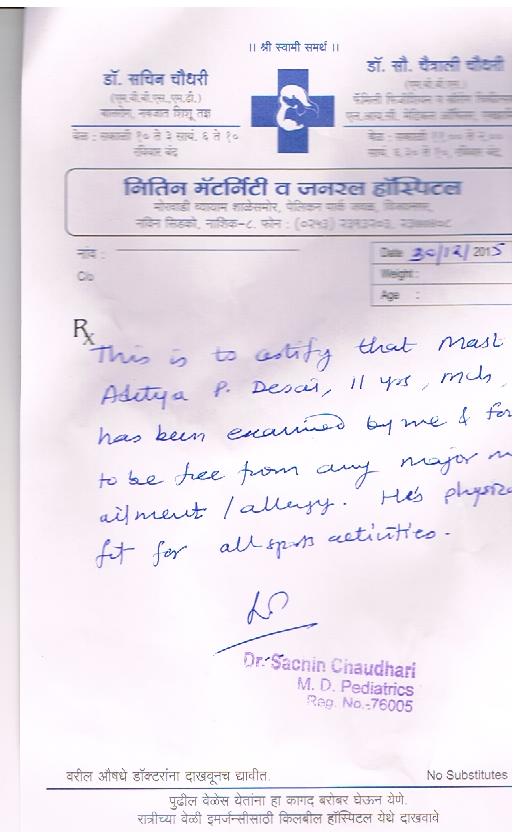 ।। श्री स्वामी समर्थ ।।
डॉ. सचिन चौधरी
(एम.बी.बी.एस.,एम.डी.)
बालरोग, नवजात शिशू तज्ञ
वेळ : सकाळी १० ते ३ सायं. ६ ते १०
रविवार बंद
डॉ. सौ. चैत्राली चौधरी
(एम.बी.बी.एस.)
वेळ : सकाळी ११.०० ते २.००
सायं. ६.३० ते १०, रविवार बंद
नितिन मॅटर्निटी व जनरल हॉस्पिटल
मोरवाडी व्यायाम शाळेसमोर, पेलिकन पार्क जवळ,
नविन सिडको, नाशिक-८. फोन : (०२५३)
नांव :
C/o
Date 30/12/2015
Weight :
Age :
Rx
This is to certify that Mast
Aditya P. Desai, 11 yrs, mch,
has been examined by me & fo
to be free from any major m
ailment / allergy. He's physica
fit for all sports activities.
Dr. Sachin Chaudhari
M. D. Pediatrics
Reg. No.-76005
वरील औषधे डॉक्टरांना दाखवूनच द्यावीत.
No Substitutes
पुढील वेळेस येतांना हा कागद बरोबर घेऊन येणे.
रात्रीच्या वेळी इमर्जन्सीसाठी किलबील हॉस्पिटल येथे दाखवावे